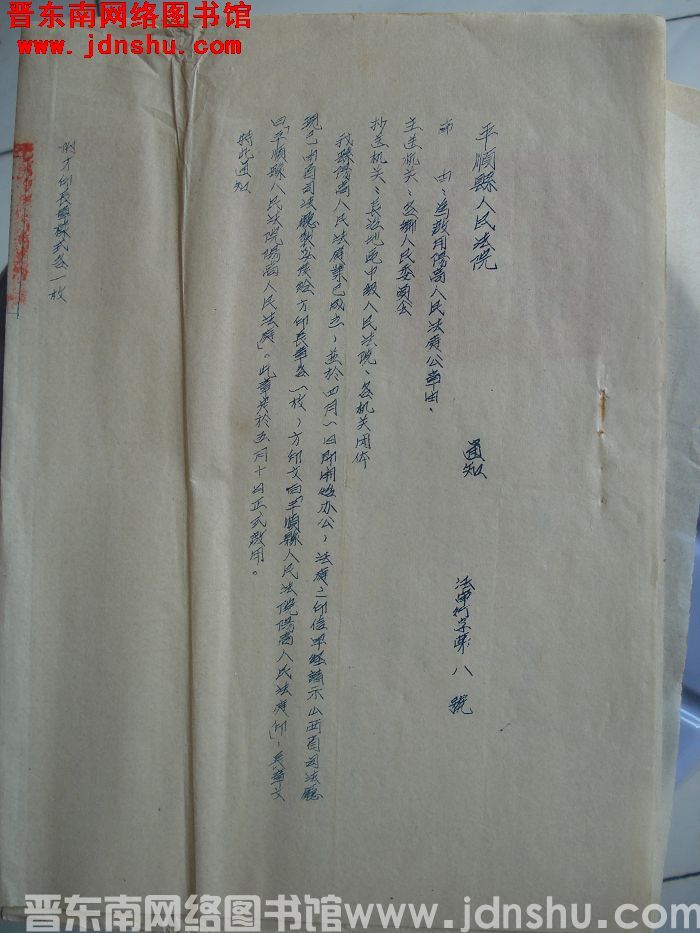 晋东南网络图书馆
www.jdnshu.com
平順縣人民法院
通知
法布行字第八號
事由：為啟用陽高人民法庭公章由、
主送机关：各鄉人民委員会
抄送机关：長治地區中級人民法院、各机关团体
我縣陽高人民法庭業已成立，並於四月一日即開始办公，法庭之印信早經請示山西省司法廳
現已由省司法廳製安發給方印長章各一枚，方印文曰「平順縣人民法院陽高人民法庭印」，長章文
曰「平順縣人民法院陽高人民法庭」。此章央於五月十日正式啟用。
特此通知
附方印長章样式各一枚
晋东南网络图书馆www.jdnshu.com